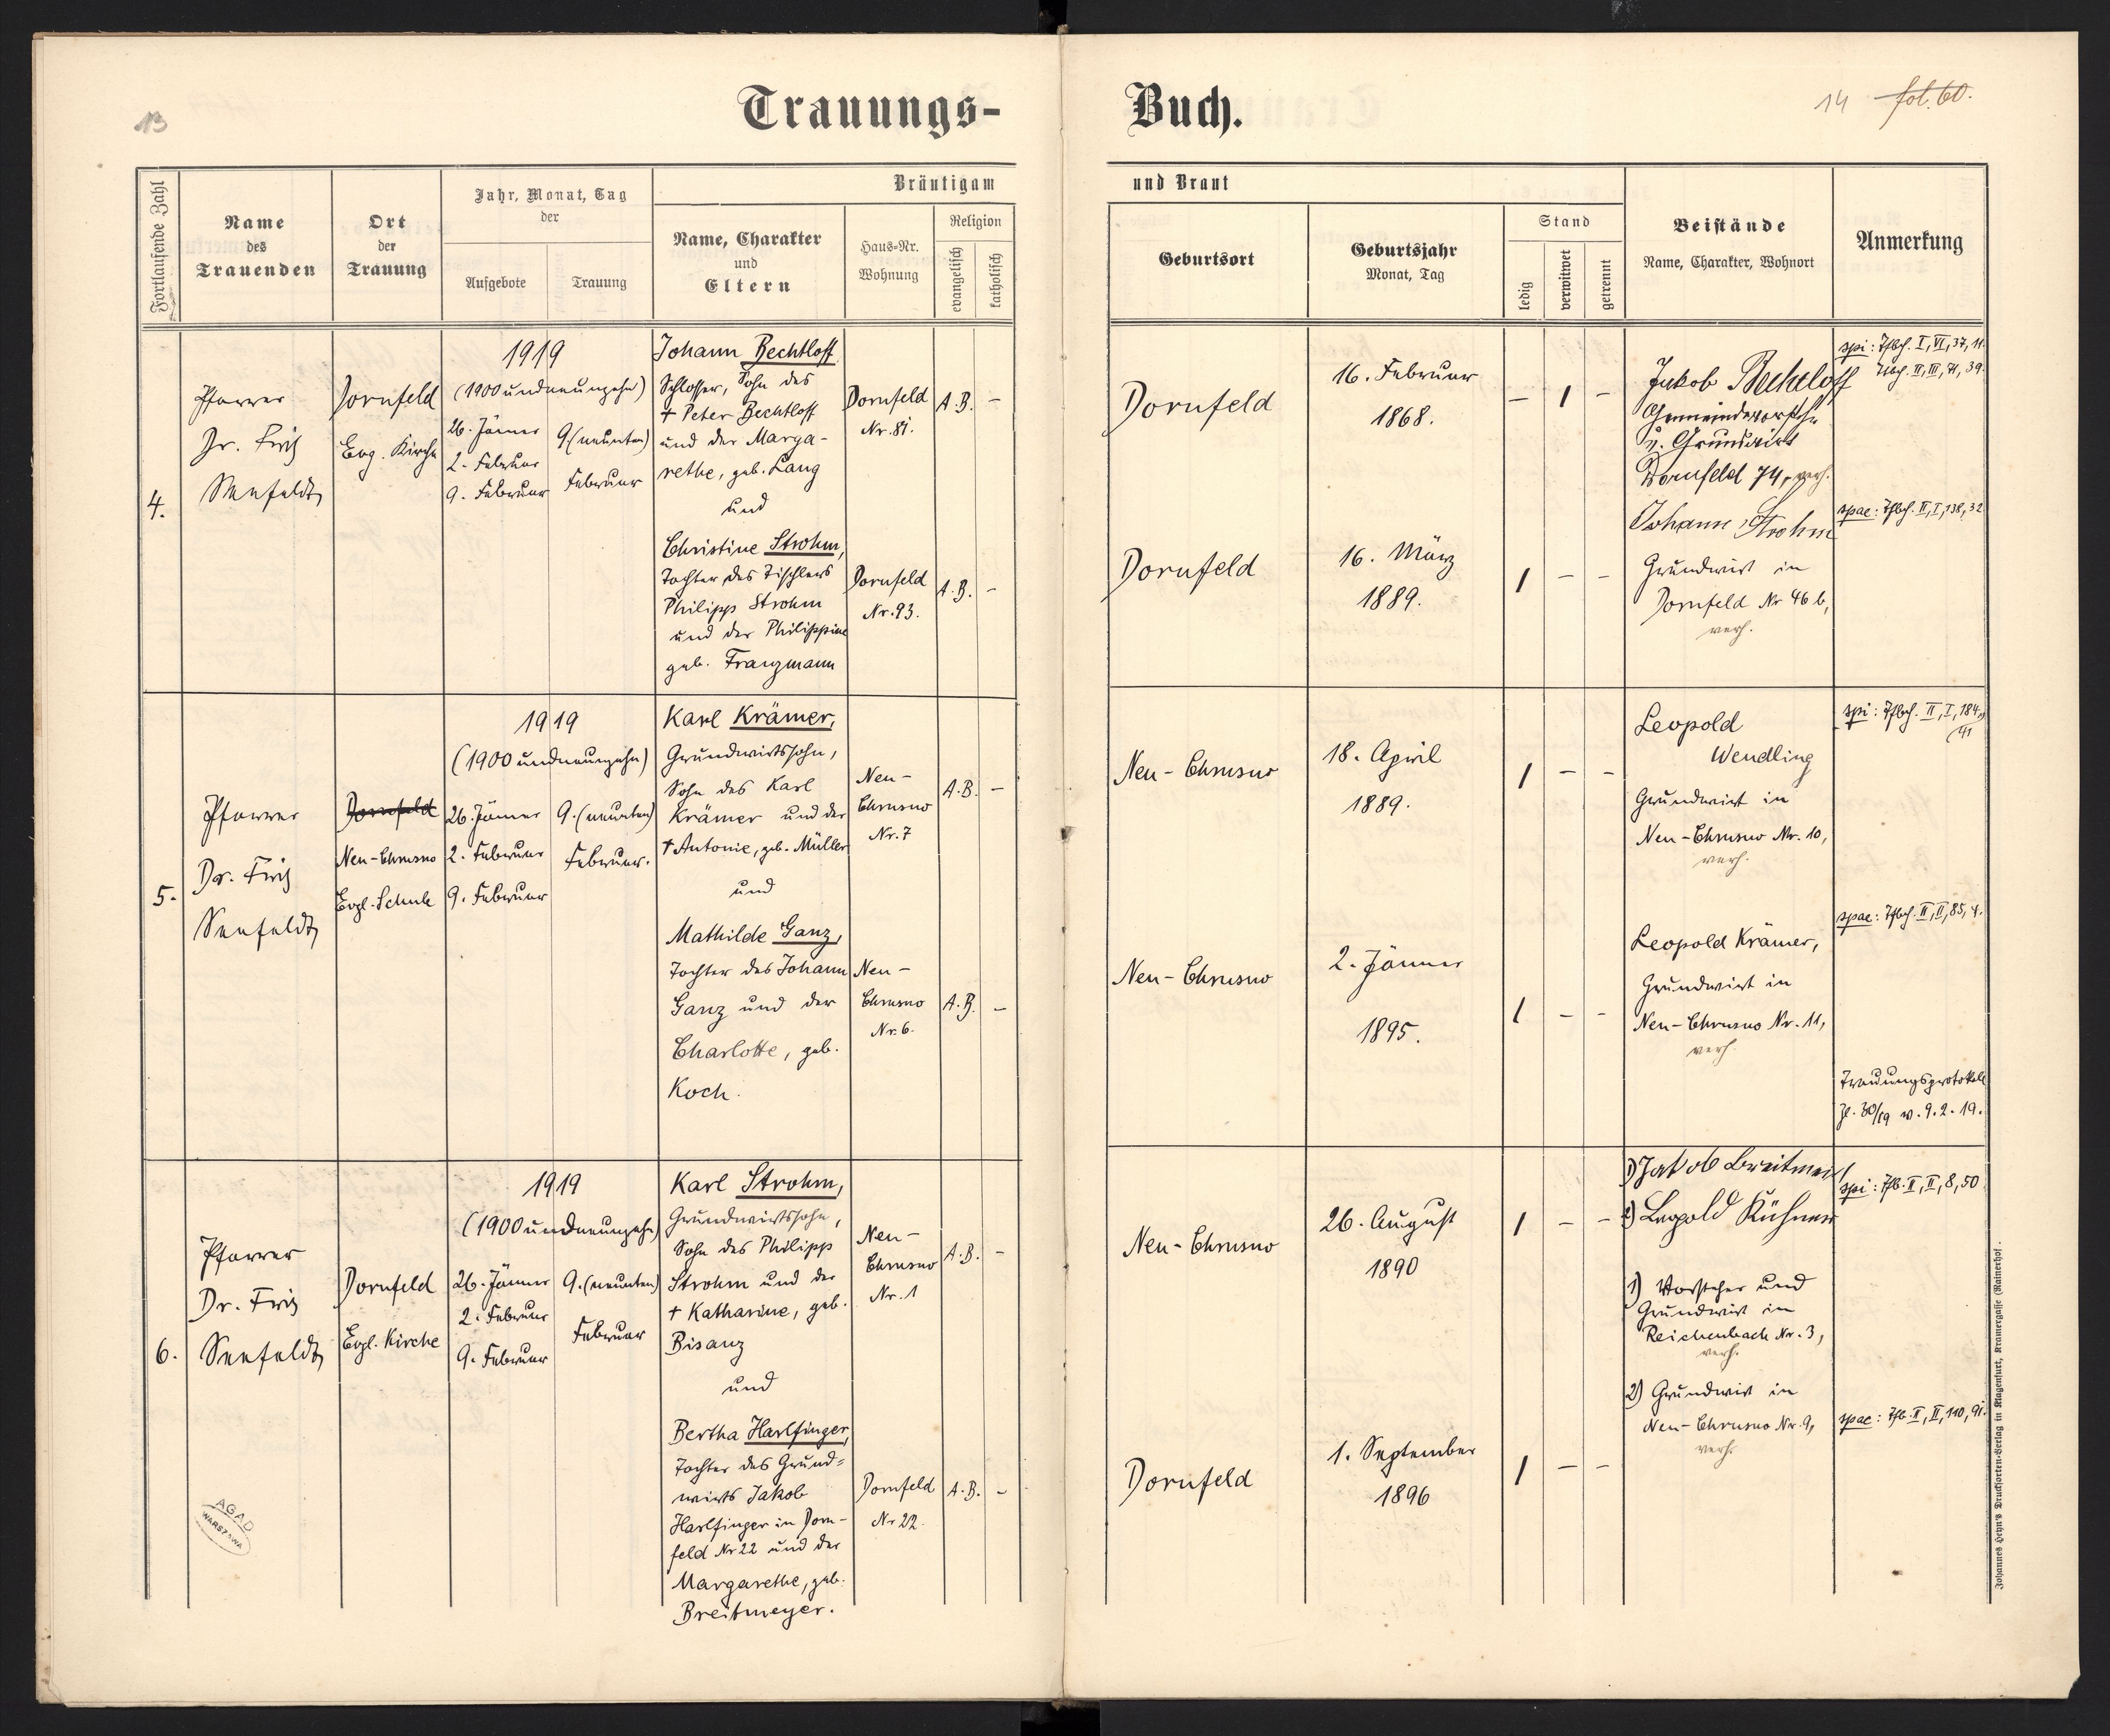 13
Trauungs-
Buch.
14 fol. 60.
Fortlaufende Zahl
Name
des
Trauenden
Ort
der
Trauung
Jahr, Monat, Tag
der
Aufgebote
Trauung
Bräutigam
Name, Charakter
und
Eltern
Haus-Nr.
Wohnung
Religion
evangelisch
katholisch
und Braut
Geburtsort
Geburtsjahr
Monat, Tag
Stand
ledig
verwitwet
getrennt
Beistände
Name, Charakter, Wohnort
Anmerkung
4.
Pfarrer
Dr. Fritz
Seefeldt
Dornfeld
Evg. Kirche
1919
(1900 undneunzehn)
26. Jänner
2. Februar
9. Februar
9. (neunten)
Februar
Johann Bechtloff
Schlosser, Sohn des
+ Peter Bechtloff
und der Marga-
rethe, geb. Lang
und
Christine Strohm,
Tochter des Tischlers
Philipp Strohm
und der Philippine
geb. Franzmann
Dornfeld
Nr. 81.
A.B. –
Dornfeld
Nr. 93.
A.B. –
Dornfeld
16. Februar
1868.
– 1 –
Dornfeld
16. März
1889.
1 – –
Jakob Bechtloff
Gemeindevorsteh.
u. Grundwirt
Dornfeld 74, verh.
Johann Strohm
Grundwirt in
Dornfeld Nr 46 b,
verh.
spi: Tfbch. I, VI, 37, 11.
Tfbch. II, III, 71, 39.
spae: Tfbch. II, I, 138, 32
5.
Pfarrer
Dr. Fritz
Seefeldt
Dornfeld
Neu-Chrusno
Evgl. Schule
1919
(1900 undneunzehn)
26. Jänner
2. Februar
9. Februar
9. (neunten)
Februar.
Karl Krämer,
Grundwirtssohn,
Sohn des Karl
Krämer und der
+ Antonie, geb. Müller
und
Mathilde Ganz,
Tochter des Johann
Ganz und der
Charlotte, geb.
Koch.
Neu-
Chrusno
Nr. 7
A.B. –
Neu-
Chrusno
Nr. 6.
A.B. –
Neu-Chrusno
18. April
1889.
1 – –
Neu-Chrusno
2. Jänner
1895.
1 – –
Leopold
Wendling
Grundwirt in
Neu-Chrusno Nr. 10,
verh.
Leopold Krämer,
Grundwirt in
Neu-Chrusno Nr. 11,
verh.
spi: Tfbch. II, I, 184,
41
spae: Tfbch. II, II, 85, 4.
Trauungsprotokoll
Zl. 30/19 v. 9. 2. 19.
6.
Pfarrer
Dr. Fritz
Seefeldt
Dornfeld
Evgl. Kirche
1919
(1900 undneunzehn)
26. Jänner
2. Februar
9. Februar
9. (neunten)
Februar
Karl Strohm,
Grundwirtssohn,
Sohn des Philipp
Strohm und der
+ Katharine, geb.
Bisanz
und
Bertha Harlfinger,
Tochter des Grund-
wirts Jakob
Harlfinger in Dorn-
feld Nr 22 und der
Margarethe, geb.
Breitmeyer.
Neu-
Chrusno
Nr. 1
A.B. –
Dornfeld
Nr 22.
A.B. –
Neu-Chrusno
26. August
1890
1 – –
Dornfeld
1. September
1896
1 – –
1) Jakob
2) Leopold Kühner
1) Vorsteher und
Grundwirt in
Reichenbach Nr. 3,
verh.
2) Grundwirt in
Neu-Chrusno Nr. 9,
verh.
spi: Tfb. II, II, 8, 50
spae: Tfb. II, II, 110, 91.
AGAD
WARSZAWA
Johannes Heyn's Drucksorten-Verlag in Klagenfurt, Kramergasse (Rainerhof.